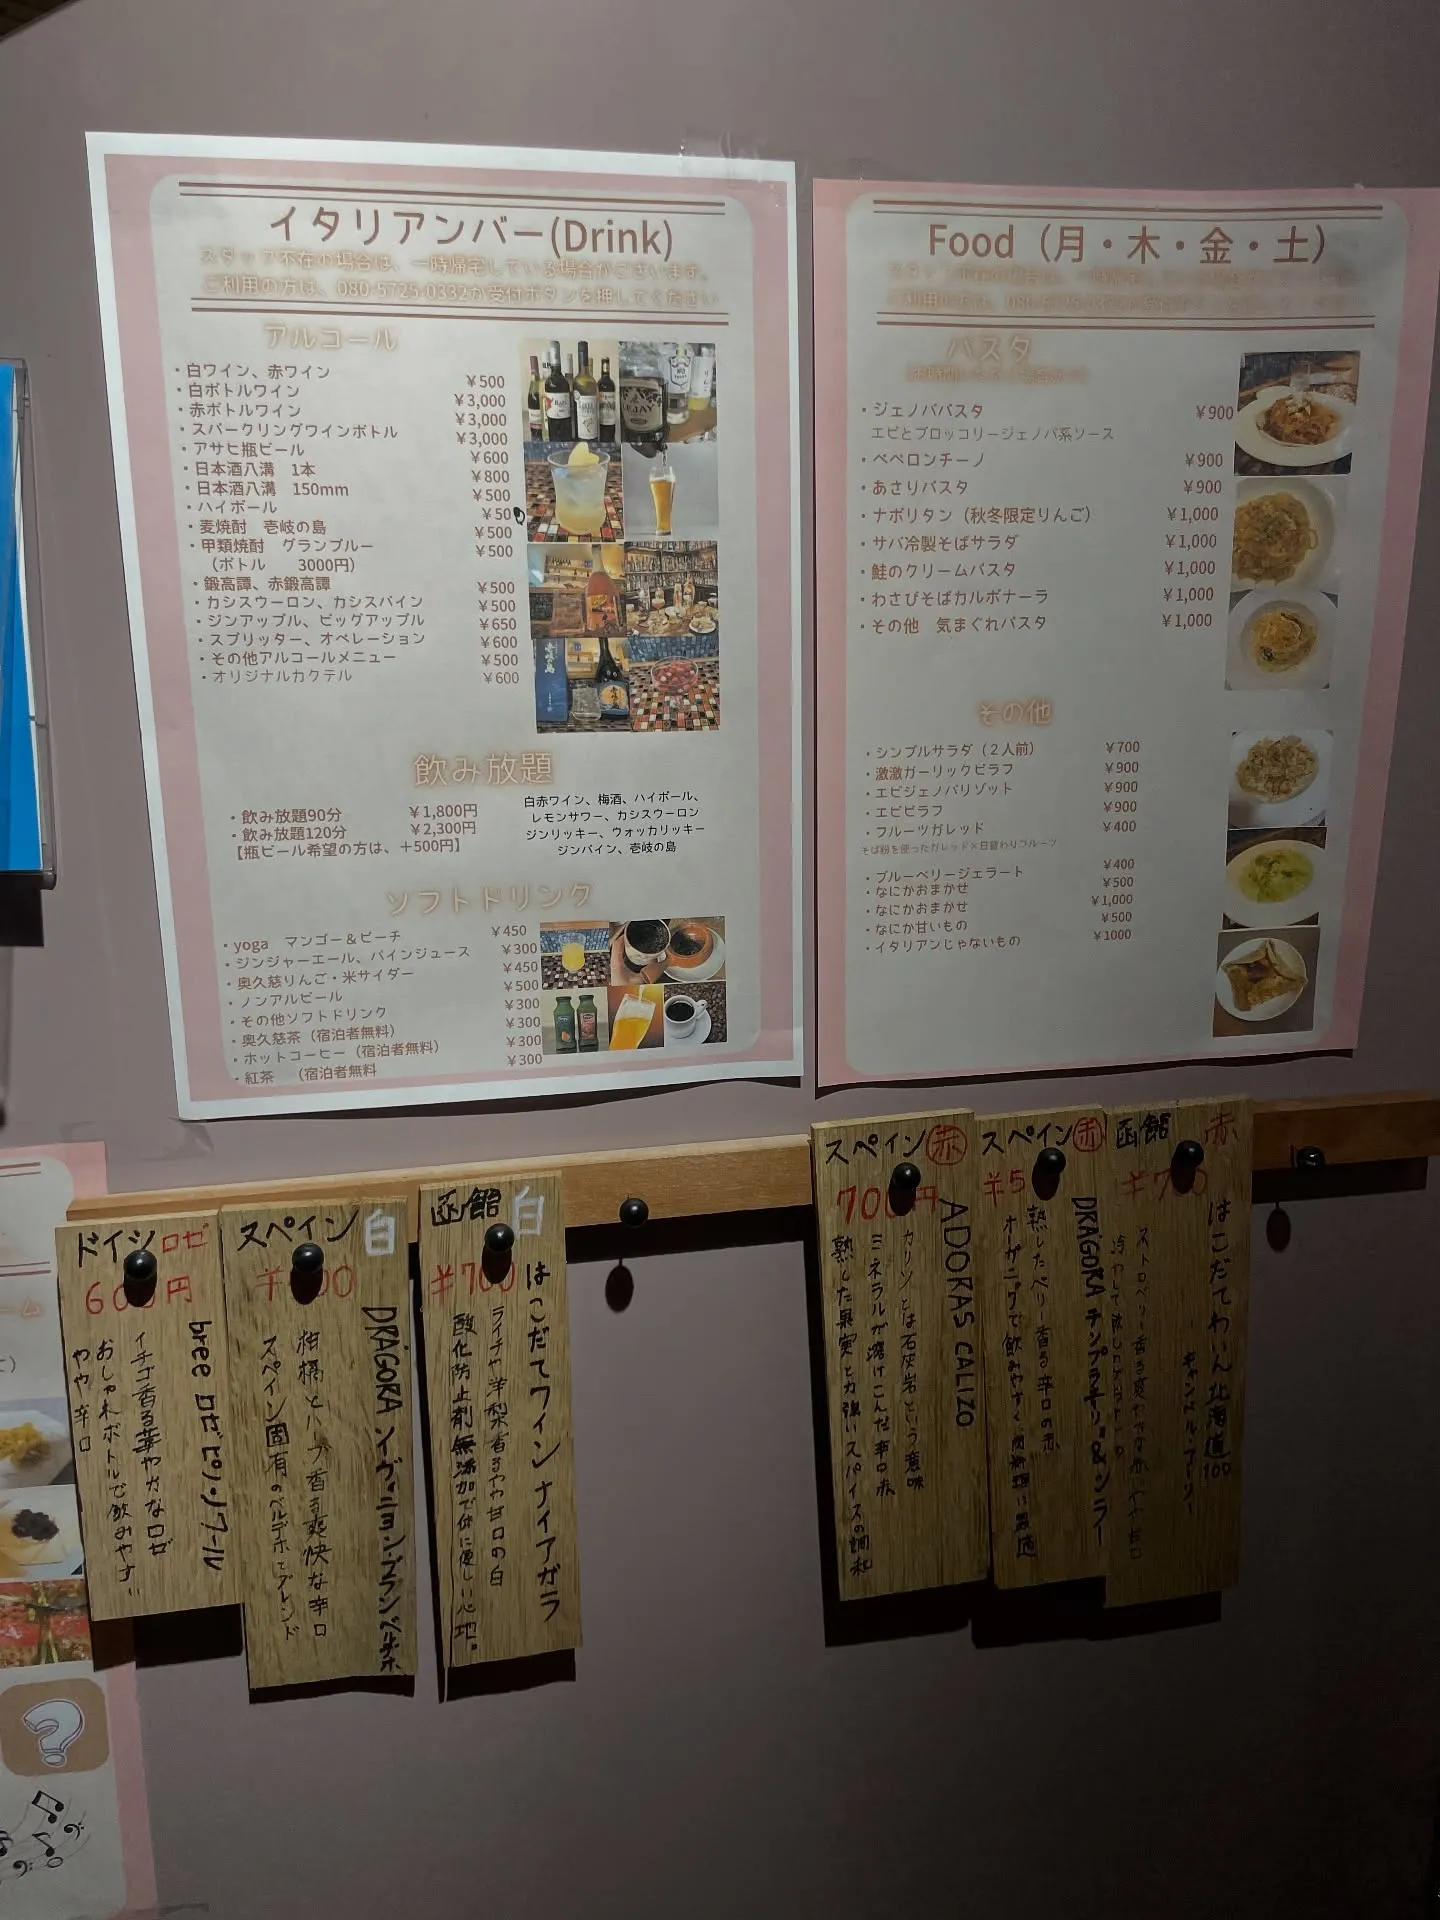 イタリアンバー(Drink)
スタッフ不在の場合は、一時帰宅している場合がございます。
ご利用の方は、080-5725-0332か受付ボタンを押してください
アルコール
・白ワイン、赤ワイン ¥500
・白ボトルワイン ¥3,000
・赤ボトルワイン ¥3,000
・スパークリングワインボトル ¥3,000
・アサヒ瓶ビール ¥600
・日本酒八溝 1本 ¥800
・日本酒八溝 150mm ¥500
・ハイボール ¥50
・麦焼酎 壱岐の島 ¥500
・甲類焼酎 グランブルー ¥500
(ボトル 3000円)
・鍛高譚、赤鍛高譚 ¥500
・カシスウーロン、カシスパイン ¥500
・ジンアップル、ビッグアップル ¥650
・スプリッター、オペレーション ¥600
・その他アルコールメニュー ¥500
・オリジナルカクテル ¥600
飲み放題
・飲み放題90分 ¥1,800円
・飲み放題120分 ¥2,300円
【瓶ビール希望の方は、+500円】
白赤ワイン、梅酒、ハイボール、
レモンサワー、カシスウーロン
ジンリッキー、ウォッカリッキー
ジンバイン、壱岐の島
ソフトドリンク
・yoga マンゴー&ピーチ ¥450
・ジンジャーエール、パインジュース ¥300
・奥久慈りんご・米サイダー ¥450
・ノンアルビール ¥500
・その他ソフトドリンク ¥300
・奥久慈茶(宿泊者無料) ¥300
・ホットコーヒー(宿泊者無料) ¥300
・紅茶 (宿泊者無料 ¥300
Food(月・木・金・土)
パスタ
・ジェノバパスタ ¥900
エビとブロッコリージェノバ系ソース
・ペペロンチーノ ¥900
・あさりパスタ ¥900
・ナポリタン(秋冬限定りんご) ¥1,000
・サバ冷製そばサラダ ¥1,000
・鮭のクリームパスタ ¥1,000
・わさびそばカルボナーラ ¥1,000
・その他 気まぐれパスタ ¥1,000
その他
・シンプルサラダ(2人前) ¥700
・激激ガーリックピラフ ¥900
・エビジェノバリゾット ¥900
・エビピラフ ¥900
・フルーツガレッド ¥400
そば粉を使ったガレッド×日替わりフルーツ
・ブルーベリージェラート ¥400
・なにかおまかせ ¥500
・なにかおまかせ ¥1,000
・なにか甘いもの ¥500
・イタリアンじゃないもの ¥1000
ドイツ ロゼ
60 円
bree ロゼ ピノ・ノワール
イチゴ香る華やかなロゼ
おしゃれボトルで飲みやすい
やや辛口
スペイン 白
¥ 00
DRÁGORA
柑橘とハーブ香る爽快な辛口
スペイン固有のベルデホとブレンド
函館 白
¥700
はこだてワイン ナイアガラ
ライチや洋梨香るやや甘口の白
酸化防止剤無添加で体に優しい心地。
スペイン 赤
700円
ADORAS CALIZO
カリソとは石灰岩という意味
ミネラルが溶けこんだ辛口赤
熟した果実と力強いスパイスの調和
スペイン 赤
¥5
DRÁGORA テンプラニーリョ&シラー
熟したベリー香る辛口の赤
オーガニックで飲みやすく
函館 赤
¥7 0
はこだてわいん 北海道100
キャンベル・アーリー